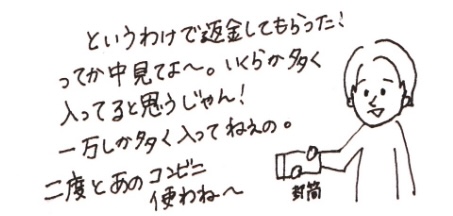 というわけで返金してもらった!
ってか中見てよ〜。いくらか多く
入ってると思うじゃん!
一万しか多く入ってねえの。
二度とあのコンビニ
使わね〜
封筒